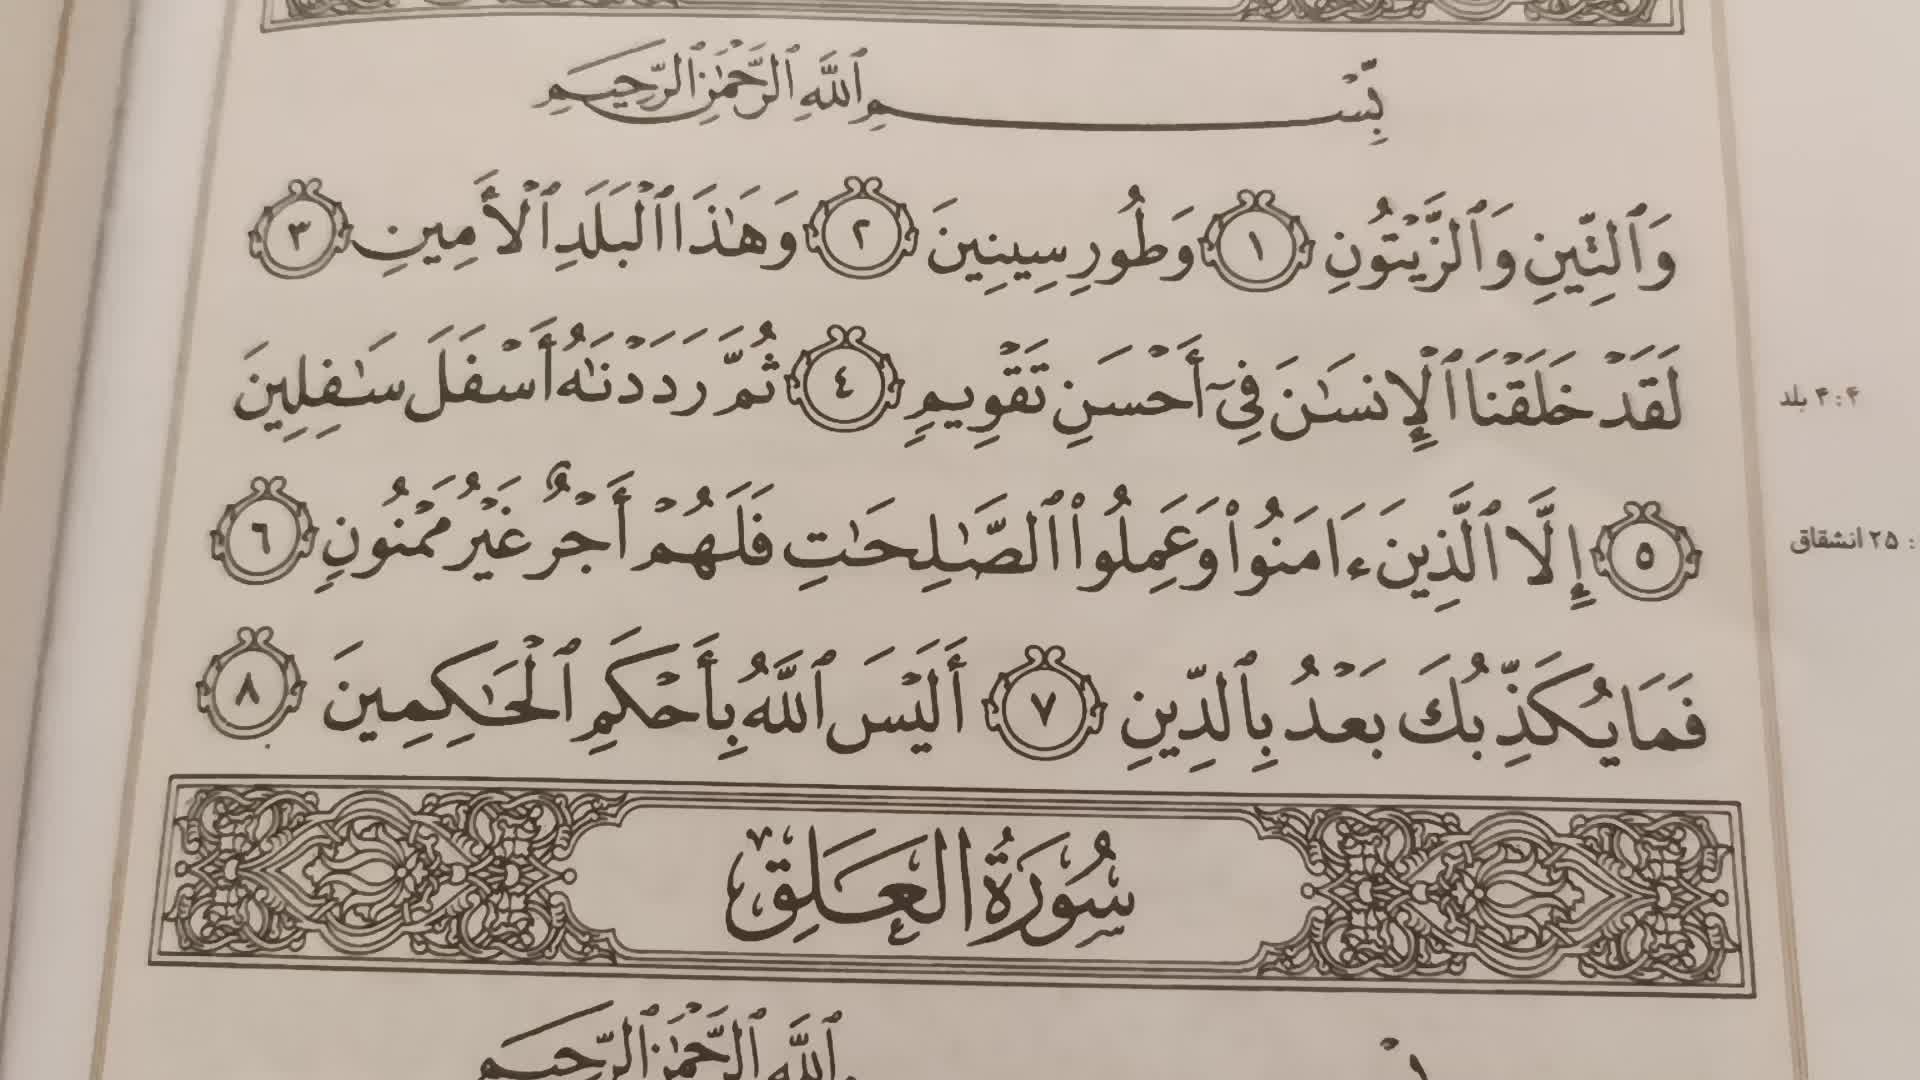 بِسْمِ ٱللَّهِ ٱلرَّحْمَٰنِ ٱلرَّحِيمِ
وَٱلتِّينِ وَٱلزَّيْتُونِ ١ وَطُورِ سِينِينَ ٢ وَهَٰذَا ٱلْبَلَدِ ٱلْأَمِينِ ٣
لَقَدْ خَلَقْنَا ٱلْإِنسَٰنَ فِىٓ أَحْسَنِ تَقْوِيمٍ ٤ ثُمَّ رَدَدْنَٰهُ أَسْفَلَ سَٰفِلِينَ
۴ : ۴ بلد
٥ إِلَّا ٱلَّذِينَ ءَامَنُوا۟ وَعَمِلُوا۟ ٱلصَّٰلِحَٰتِ فَلَهُمْ أَجْرٌ غَيْرُ مَمْنُونٍ ٦
: ٢٥ انشقاق
فَمَا يُكَذِّبُكَ بَعْدُ بِٱلدِّينِ ٧ أَلَيْسَ ٱللَّهُ بِأَحْكَمِ ٱلْحَٰكِمِينَ ٨
سُورَةُ العَلَقِ
ٱللَّهِ ٱلرَّحْمَٰنِ ٱلرَّحِيمِ